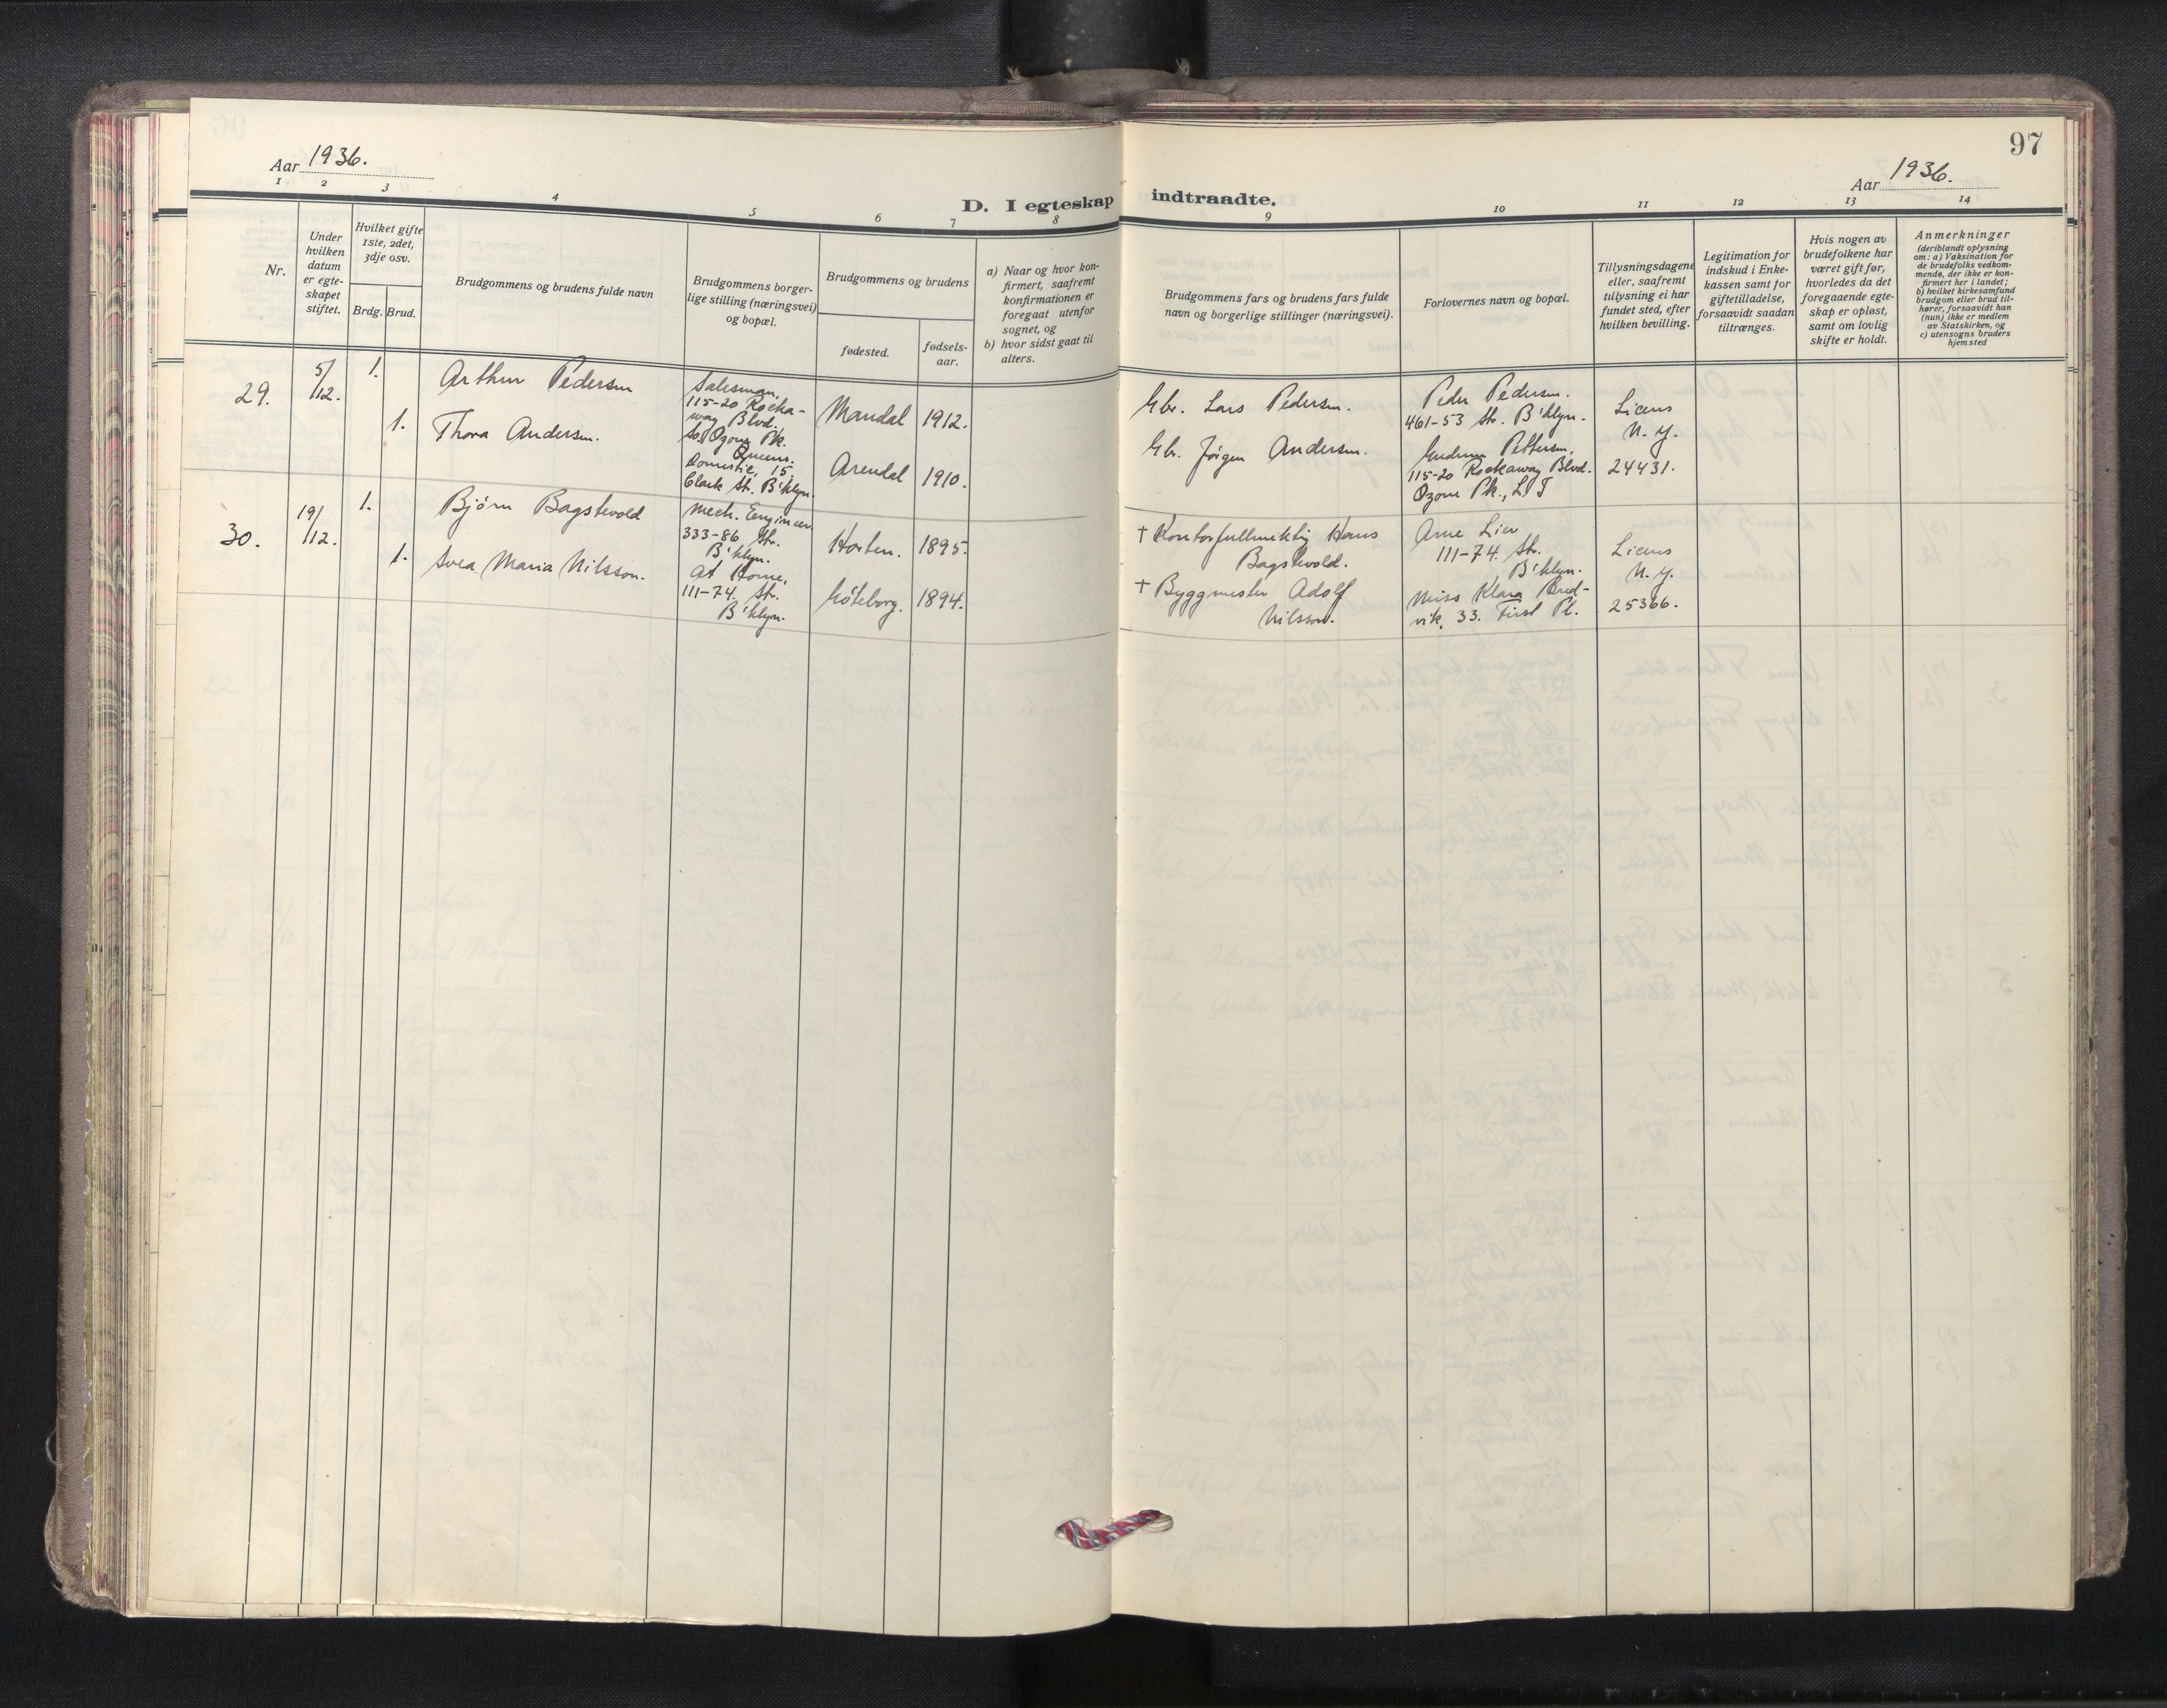 97
Aar 1936.
Aar 1936.
D. I egteskap indtraadte.
1 2 3 4 5 6 7 8 9 10 11 12 13 14
Nr.
Under
hvilken
datum
er egte-
skapet
stiftet.
Hvilket gifte
1ste, 2det,
3dje osv.
Brdg. Brud.
Brudgommens og brudens fulde navn
Brudgommens borger-
lige stilling (næringsvei)
og bopæl.
Brudgommens og brudens
fødested.
fødsels-
aar.
a) Naar og hvor kon-
firmert, saafremt
konfirmationen er
foregaat utenfor
sognet, og
b) hvor sidst gaat til
alters.
Brudgommens fars og brudens fars fulde
navn og borgerlige stillinger (næringsvei).
Forlovernes navn og bopæl.
Tillysningsdagene
eller, saafremt
tillysning ei har
fundet sted, efter
hvilken bevilling.
Legitimation for
indskud i Enke-
kassen samt for
giftetilladelse,
forsaavidt saadan
tiltrænges.
Hvis nogen av
brudefolkene har
været gift før,
hvorledes da det
foregaaende egte-
skap er opløst,
samt om lovlig
skifte er holdt.
Anmerkninger
(deriblandt oplysning
om: a) Vaksination for
de brudefolks vedkom-
mende, der ikke er kon-
firmert her i landet;
b) hvilket kirkesamfund
brudgom eller brud til-
hører, forsaavidt han
(hun) ikke er medlem
av Statskirken, og
c) utensogns bruders
hjemsted
29.
5/12.
1.
Arthur Pedersen
Salesman,
115-20 Rocka-
way Blvd.
So. Ozone Pk.
Queens.
Mandal
1912.
Gbr. Lars Pedersen.
Peder Pedersen.
461-53 Str. B'klyn.
Licens
N. Y.
24431.
1.
Thora Andersen.
Domestic, 15
Clark St. B'klyn.
Arendal
1910.
Gbr. Jörgen Andersen.
Gudrun Pettersen,
115-20 Rockaway Blvd.
Ozone Pk., L I
30.
19/12.
1.
Bjórn Bagstevold
Mech. Eengineer
333-86 Str.
B'klyn.
Horten.
1895.
+ Kontorfullmektig Hans
Bagstevold.
Arne Lier
111-74. Str.
B'klyn.
Licens
N. Y.
25366.
1.
Svea Maria Nilsson.
At Home,
111-74. Str.
B'klyn.
Göteborg.
1894.
+ Byggmester Adolf
Nilsson.
Miss Klara Brud-
vik, 33. First Pl.